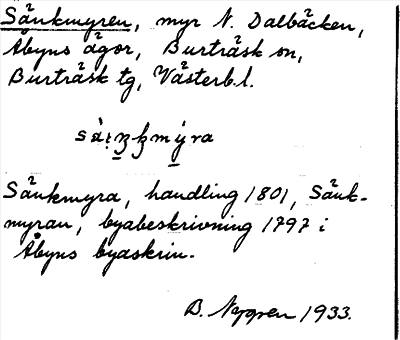 Sänkmyren, myr N. Dalbäcken,
Åbyns ägor, Burträsk sn,
Burträsk tg, Västerb. l.
Sänkmyra, handling 1801, Sänk-
myran, byabeskrivning 1797 i
Åbyns byaskrin.
B. Nygren 1933.